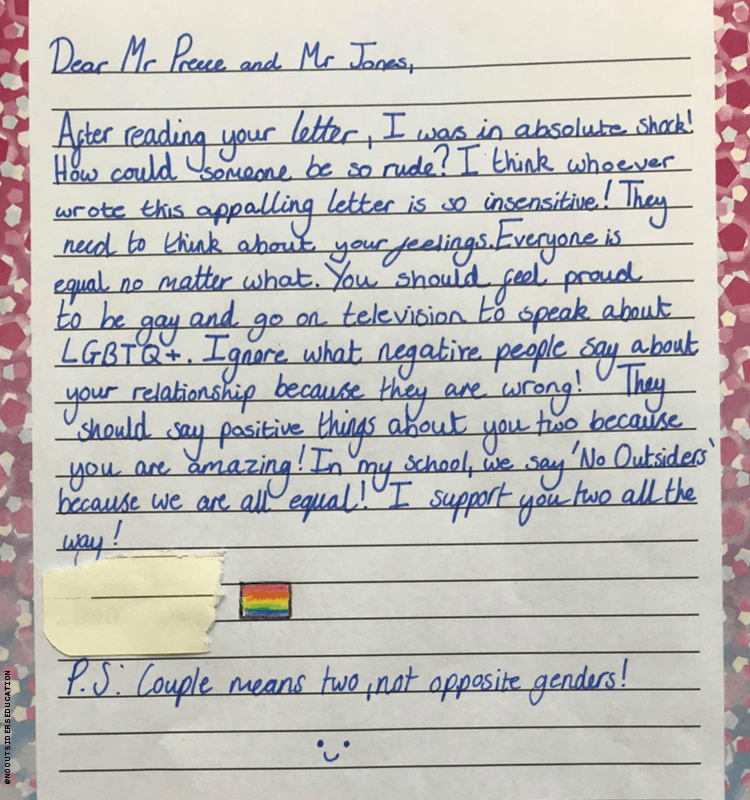 Dear Mr Preece and Mr Jones,
After reading your letter, I was in absolute shock!
How could someone be so rude? I think whoever
wrote this appalling letter is so insensitive! They
need to think about your feelings. Everyone is
equal no matter what. You should feel proud
to be gay and go on television to speak about
LGBTQ+. Ignore what negative people say about
your relationship because they are wrong! They
should say positive things about you two because
you are amazing! In my school, we say 'No Outsiders'
because we are all equal! I support you two all the
way!
P.S: Couple means two, not opposite genders!
@NOOUTSIDERSEDUCATION